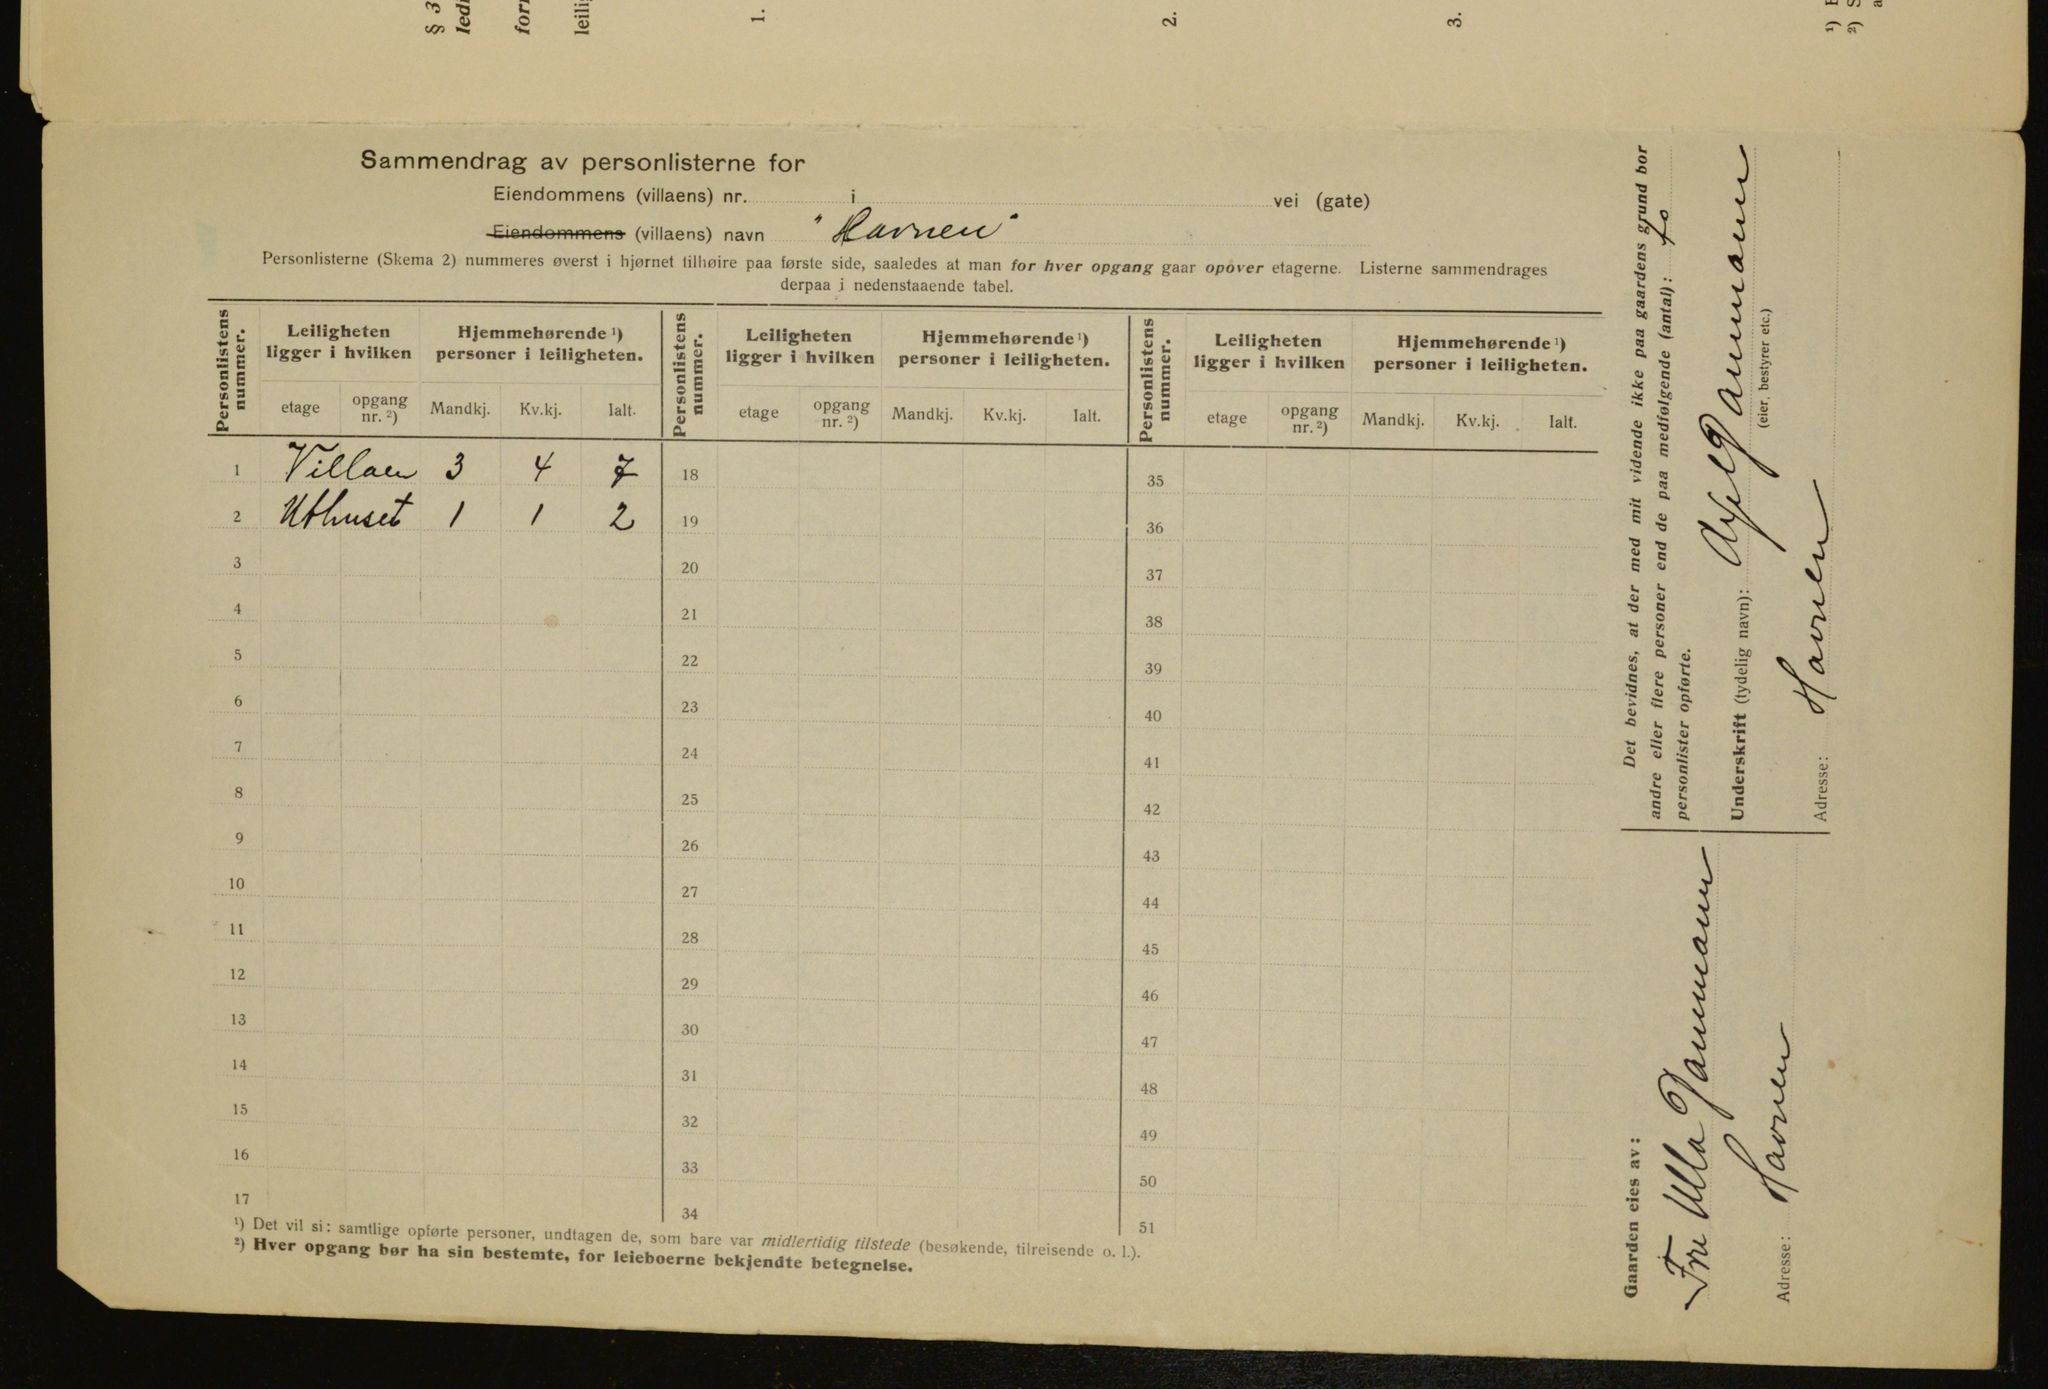 § 3
ledi
forr
leilig
1.
2.
3.
¹)
²) S
a
Sammendrag av personlisterne for
Eiendommens (villaens) nr. i vei (gate)
Eiendommens (villaens) navn "Havnen"
Personlisterne (Skema 2) nummeres øverst i hjørnet tilhøire paa første side, saaledes at man for hver opgang gaar opover etagerne. Listerne sammendrages
derpaa i nedenstaaende tabel.
Personlistens nummer. Leiligheten ligger i hvilken Hjemmehørende ¹) personer i leiligheten. Personlistens nummer. Leiligheten ligger i hvilken Hjemmehørende ¹) personer i leiligheten. Personlistens nummer. Leiligheten ligger i hvilken Hjemmehørende ¹) personer i leiligheten.
etage opgang nr. ²) Mandkj. Kv.kj. Ialt. etage opgang nr. ²) Mandkj. Kv.kj. Ialt. etage opgang nr. ²) Mandkj. Kv.kj. Ialt.
1 Villaen 3 4 7 18 35
2 Uthuset 1 1 2 19 36
3 20 37
4 21 38
5 22 39
6 23 40
7 24 41
8 25 42
9 26 43
10 27 44
11 28 45
12 29 46
13 30 47
14 31 48
15 32 49
16 33 50
17 34 51
¹) Det vil si: samtlige opførte personer, undtagen de, som bare var midlertidig tilstede (besøkende, tilreisende o. l.).
²) Hver opgang bør ha sin bestemte, for leieboerne bekjendte betegnelse.
Det bevidnes, at der med mit vidende ikke paa gaardens grund bor
andre eller flere personer end de paa medfølgende (antal): to
personlister opførte.
Underskrift (tydelig navn): Axel Pammann
(eier, bestyrer etc.)
Adresse: Havnen
Gaarden eies av:
Fru Ulla Pammann
Adresse: Havnen